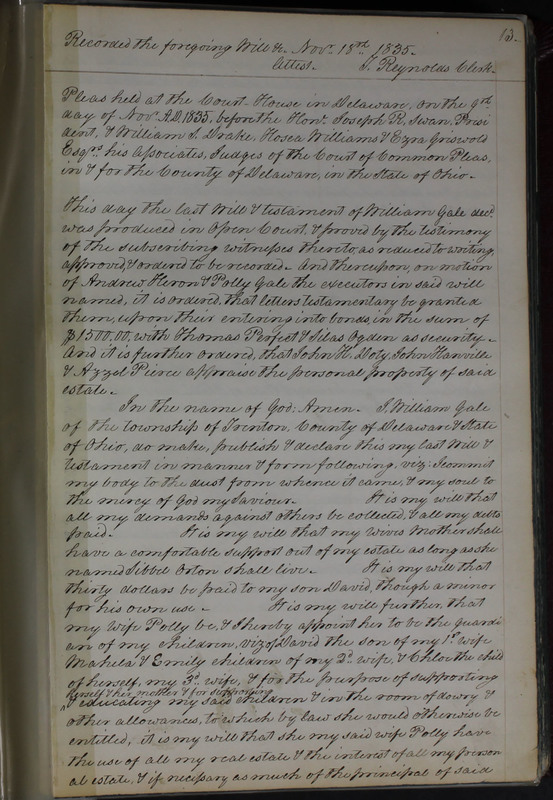 13.
Recorded the foregoing Will &c. Novr. 18th 1835.
Attest. T. Reynolds Clerk.
Pleas held at the Court-House in Delaware, on the 9th
day of Novr. A.D. 1835, before the Honr. Joseph R. Swan, Presi
dent, & William S. Drake, Hosea Williams & Ezra Griswold
Esqrs. his Associates, Judges of the Court of Common Pleas,
in & for the County of Delaware, in the State of Ohio.
This day the last Will & testament of William Gale decd.
was produced in Open Court, & proved by the testimony
of the subscribing witnesses thereto, as reduced to writing,
approved, & ordered to be recorded. And thereupon, on motion
of Andrew Heron & Polly Gale the executors in said will
named, it is ordered, that letters testamentary be granted
them, upon their entering into bonds, in the sum of
$1500.00, with Thomas Perfect & Silas Ogden as security.
And it is further ordered, that John H. Doty, John Hanville
& Azzel Pierce appraise the personal property of said
estate.
In the name of God: Amen. I, William Gale
of the township of Trenton, County of Delaware & State
of Ohio, do make, publish & declare this my last Will &
testament in manner & form following, viz: I commit
my body to the dust from whence it came, & my soul to
the mercy of God my Saviour. It is my will that
all my demands against others be collected, & all my debts
paid. It is my will that my wives Mother shall
have a comfortable support out of my estate as long as she
named Sibbel Orton shall live. It is my will that
thirty dollars be paid to my son David, though a minor
for his own use. It is my will further, that
my wife Polly be, & I hereby appoint her to be the guardi
an of my children, viz of David the son of my 1st wife
Mahela & Emily children of my 2d. wife, & Chloe the child
of herself, my 3d. wife, & for the purpose of supporting
herself & her mother & for supporting
& educating my said children & in the room of dowry &
other allowances, to which by law she would otherwise be
entitled, it is my will that she my said wife Polly have
the use of all my real estate & the interest of all my person
al estate, & if necessary as much of the principal of said